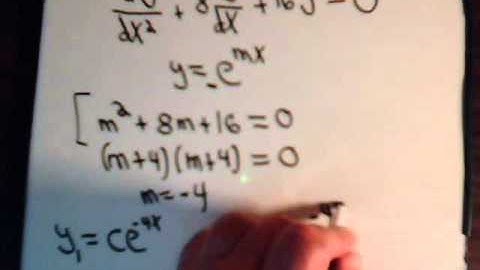 dx² + 8 dx + 16y = 0
y = e^mx
m² + 8m + 16 = 0
(m+4)(m+4) = 0
m = -4
y₁ = ce^-4x